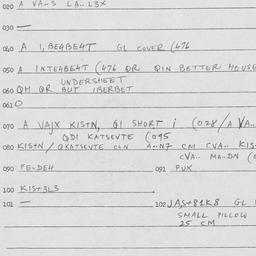 020 A VA..S LA..L3X
030 —
040 A I, BEABEAT GL COVER (476
050 A INTEABEAT (476 OR QIN BETTER HOUSE
UNDERSHEET
060 QH QR BUT IBERBET
061 O
070 A VAJX KISTN, GI SHORT i (028/A VA..
GDI KATSEVTE (095
080 KISTN/ GKATSEVTE CLN A..N7 CM CVA.. KIS
CVA.. MA..DN
090 FE-DEH 091 PUX
100 KIST3L3
101 — 102 JAS+81K8 GL
SMALL PILLOW
25 CM